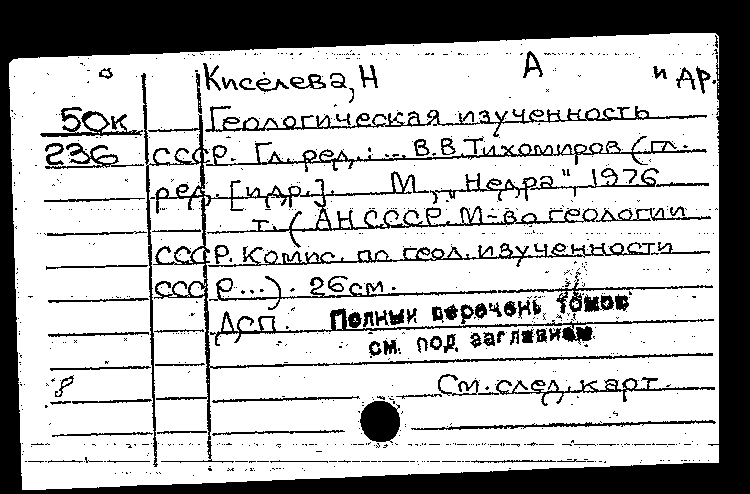 Киселева, Н А и др.
50к Геологическая изученность
236 СССР. Гл. ред.: ... В.В. Тихомиров (гл.
ред. [и др.]. М., "Недра", 1976
т. (АН СССР. М-во геологии
СССР. Комис. по геол. изученности
СССР...). 26см.
ДСП. Полный перечень томов
см. под заглавием
См. след. карт.